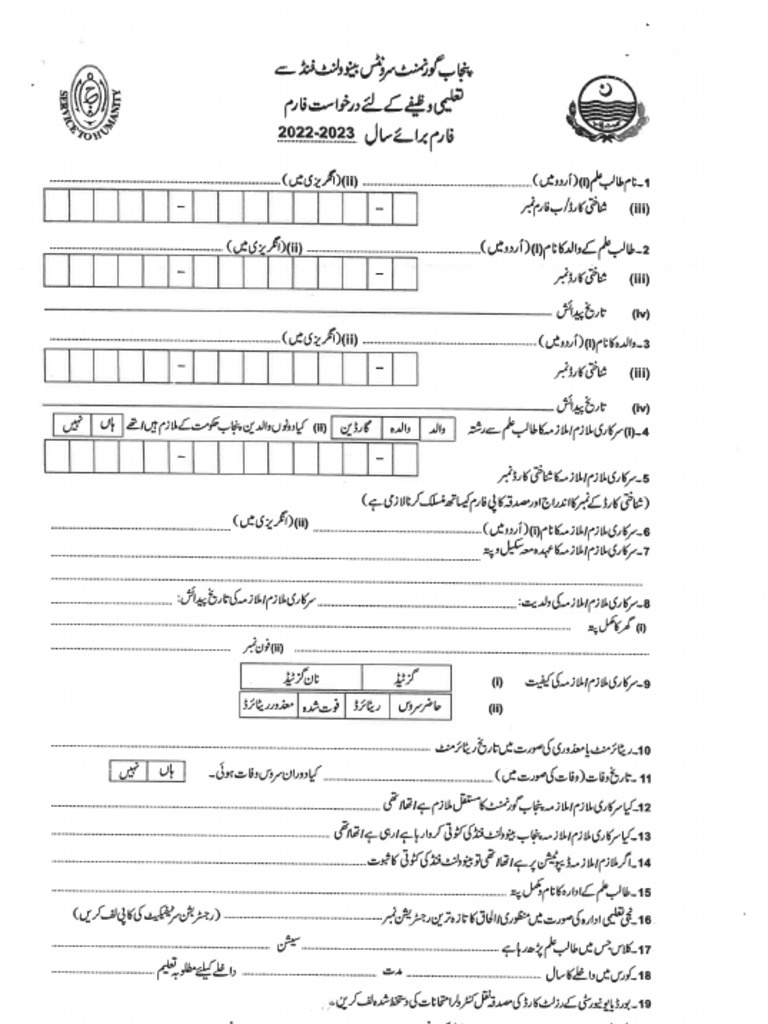 پنجاب گورنمنٹ سرونٹس بینوولنٹ فنڈ سے
تعلیمی وظیفے کے لئے درخواست فارم
فارم برائے سال 2022-2023
SERVICE TO HUMANITY
1۔ نام طالب علم (i) (اُردو میں) (ii) (انگریزی میں)
(iii) شناختی کارڈ/ب فارم نمبر
2۔ طالب علم کے والد کا نام (i) (اُردو میں) (ii) (انگریزی میں)
(iii) شناختی کارڈ نمبر
(iv) تاریخ پیدائش
3۔ والدہ کا نام (i) (اُردو میں) (ii) (انگریزی میں)
(iii) شناختی کارڈ نمبر
(iv) تاریخ پیدائش
4۔ (i) سرکاری ملازم/ملازمہ کا طالب علم سے رشتہ والد والدہ گارڈین (ii) کیا دونوں والدین پنجاب حکومت کے ملازم ہیں/تھے ہاں نہیں
5۔ سرکاری ملازم/ملازمہ کا شناختی کارڈ نمبر
(شناختی کارڈ کے نمبر کا اندراج اور مصدقہ کاپی فارم کیساتھ منسلک کرنا لازمی ہے)
6۔ سرکاری ملازم/ملازمہ کا نام (i) (اُردو میں) (ii) (انگریزی میں)
7۔ سرکاری ملازم/ملازمہ کا عہدہ معہ سکیل و پتہ
8۔ سرکاری ملازم/ملازمہ کی ولدیت: سرکاری ملازم/ملازمہ کی تاریخ پیدائش:
(i) گھر کا مکمل پتہ
(ii) فون نمبر
9۔ سرکاری ملازم/ملازمہ کی کیفیت (i) گزٹیڈ نان گزٹیڈ
(ii) حاضر سروس ریٹائرڈ فوت شدہ معذور ریٹائرڈ
10۔ ریٹائرمنٹ یا معذوری کی صورت میں تاریخ ریٹائرمنٹ
11۔ تاریخ وفات (وفات کی صورت میں) کیا دوران سروس وفات ہوئی۔ ہاں نہیں
12۔ کیا سرکاری ملازم/ملازمہ پنجاب گورنمنٹ کا مستقل ملازم ہے/تھا/تھی
13۔ کیا سرکاری ملازم/ملازمہ پنجاب بینوولنٹ فنڈ کی کٹوتی کروا رہا ہے/رہی ہے/تھا/تھی
14۔ اگر ملازم/ملازمہ ڈیپوٹیشن پر ہے/تھا/تھی تو بینوولنٹ فنڈ کی کٹوتی کا ثبوت
15۔ طالب علم کے ادارہ کا نام و مکمل پتہ
16۔ نجی تعلیمی ادارہ کی صورت میں منظوری/الحاق کا تازہ ترین رجسٹریشن نمبر (رجسٹریشن سرٹیفکیٹ کی کاپی لف کریں)
17۔ کلاس جس میں طالب علم پڑھ رہا ہے سیشن
18۔ کورس میں داخلے کا سال مدت داخلے کیلئے مطلوبہ تعلیم
19۔ بورڈ یا یونیورسٹی کے رزلٹ کارڈ کی مصدقہ نقل کنٹرولر امتحانات کی دستخط شدہ لف کریں۔